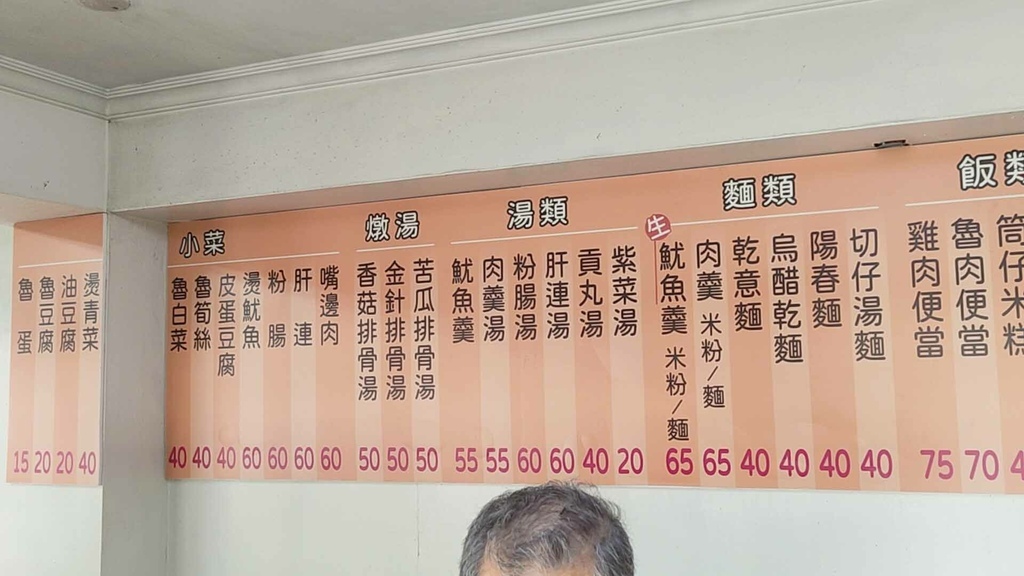 飯類
筒仔米糕
魯肉便當 70
雞肉便當 75
麵類
切仔湯麵 40
陽春麵 40
烏醋乾麵 40
乾意麵 40
肉羹 米粉/麵 65
生 魷魚羹 米粉/麵 65
湯類
紫菜湯 20
貢丸湯 40
肝連湯 60
粉腸湯 60
肉羹湯 55
魷魚羹 55
燉湯
苦瓜排骨湯 50
金針排骨湯 50
香菇排骨湯 50
小菜
嘴邊肉 60
肝連 60
粉腸 60
燙魷魚 60
皮蛋豆腐 40
魯筍絲 40
魯白菜 40
燙青菜 40
油豆腐 20
魯豆腐 20
魯蛋 15